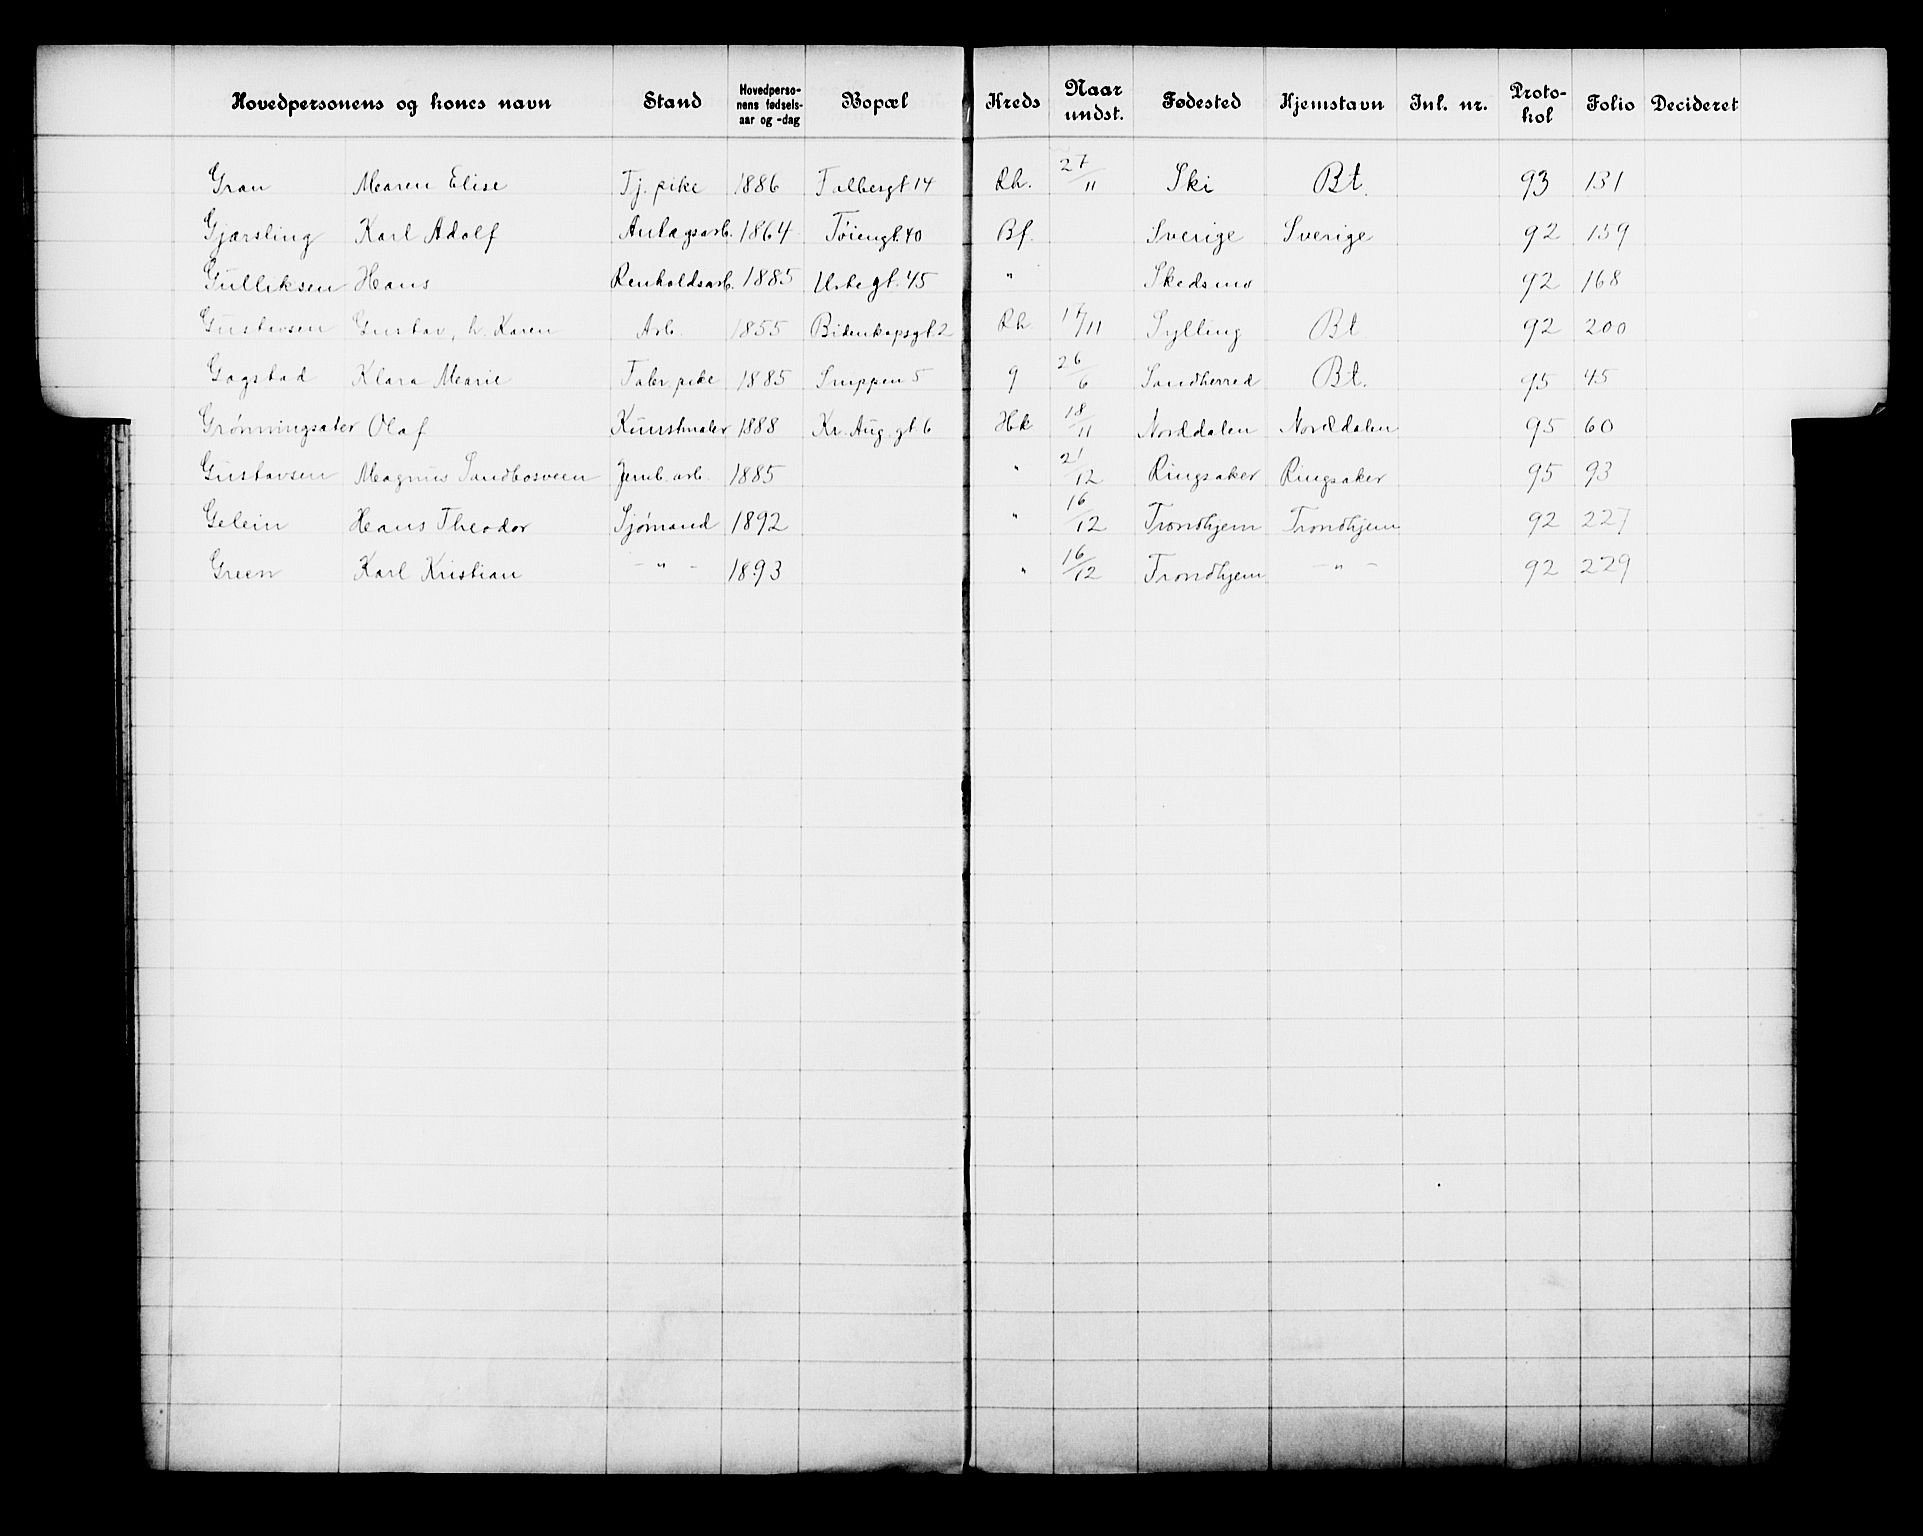 Hovedpersonens og kones navn Stand Hovedpersonens fødselsaar og -dag Bopæl Kreds Naar undst. Fødested Hjemstavn Inl. nr. Protokol Folio Decideret
Gran Maren Elise Tj. pike 1886 Falbergt 14 Rh. 27/11 Ski Bt. 93 131
Gjærsling Karl Adolf Anlægsarb. 1864 Tøiengt. 40 Bf. Sverige Sverige 92 159
Gulliksen Hans Renholdsarb. 1885 Urtegt. 45 " Skedsmo 92 168
Gustavsen Gustav, h. Karen Arb. 1855 Bidenkapsgt. 2 Rh. 17/11 Sylling Bt 92 200
Gogstad Klara Marie Fabr pike 1885 Snippen 5 9 26/6 Sandherred Bt. 95 45
Grønningsater Olaf Kunstmaler 1888 Kr. Aug. gt 6 Hk 18/11 Norddalen Norddalen 95 60
Gustavsen Magnus Sandbosveen Jernb. arb. 1885 " 21/12 Ringsaker Ringsaker 95 93
Gelein Hans Theodor Sjømand 1892 " 16/12 Trondhjem Trondhjem 92 227
Green Karl Kristian - " - 1893 " 16/12 Trondhjem - " - 92 229